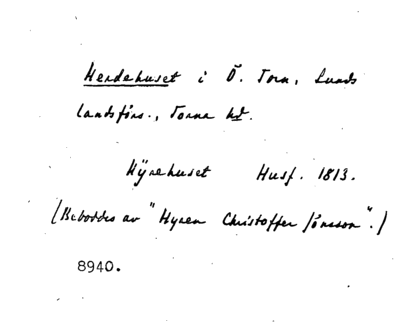 Herdehuset i Ö. Torn, Lunds
landsförs., Torna hd.
Hÿrehuset Husf. 1813.
(Beboddes av "Hyren Christoffer Jönsson".)
8940.